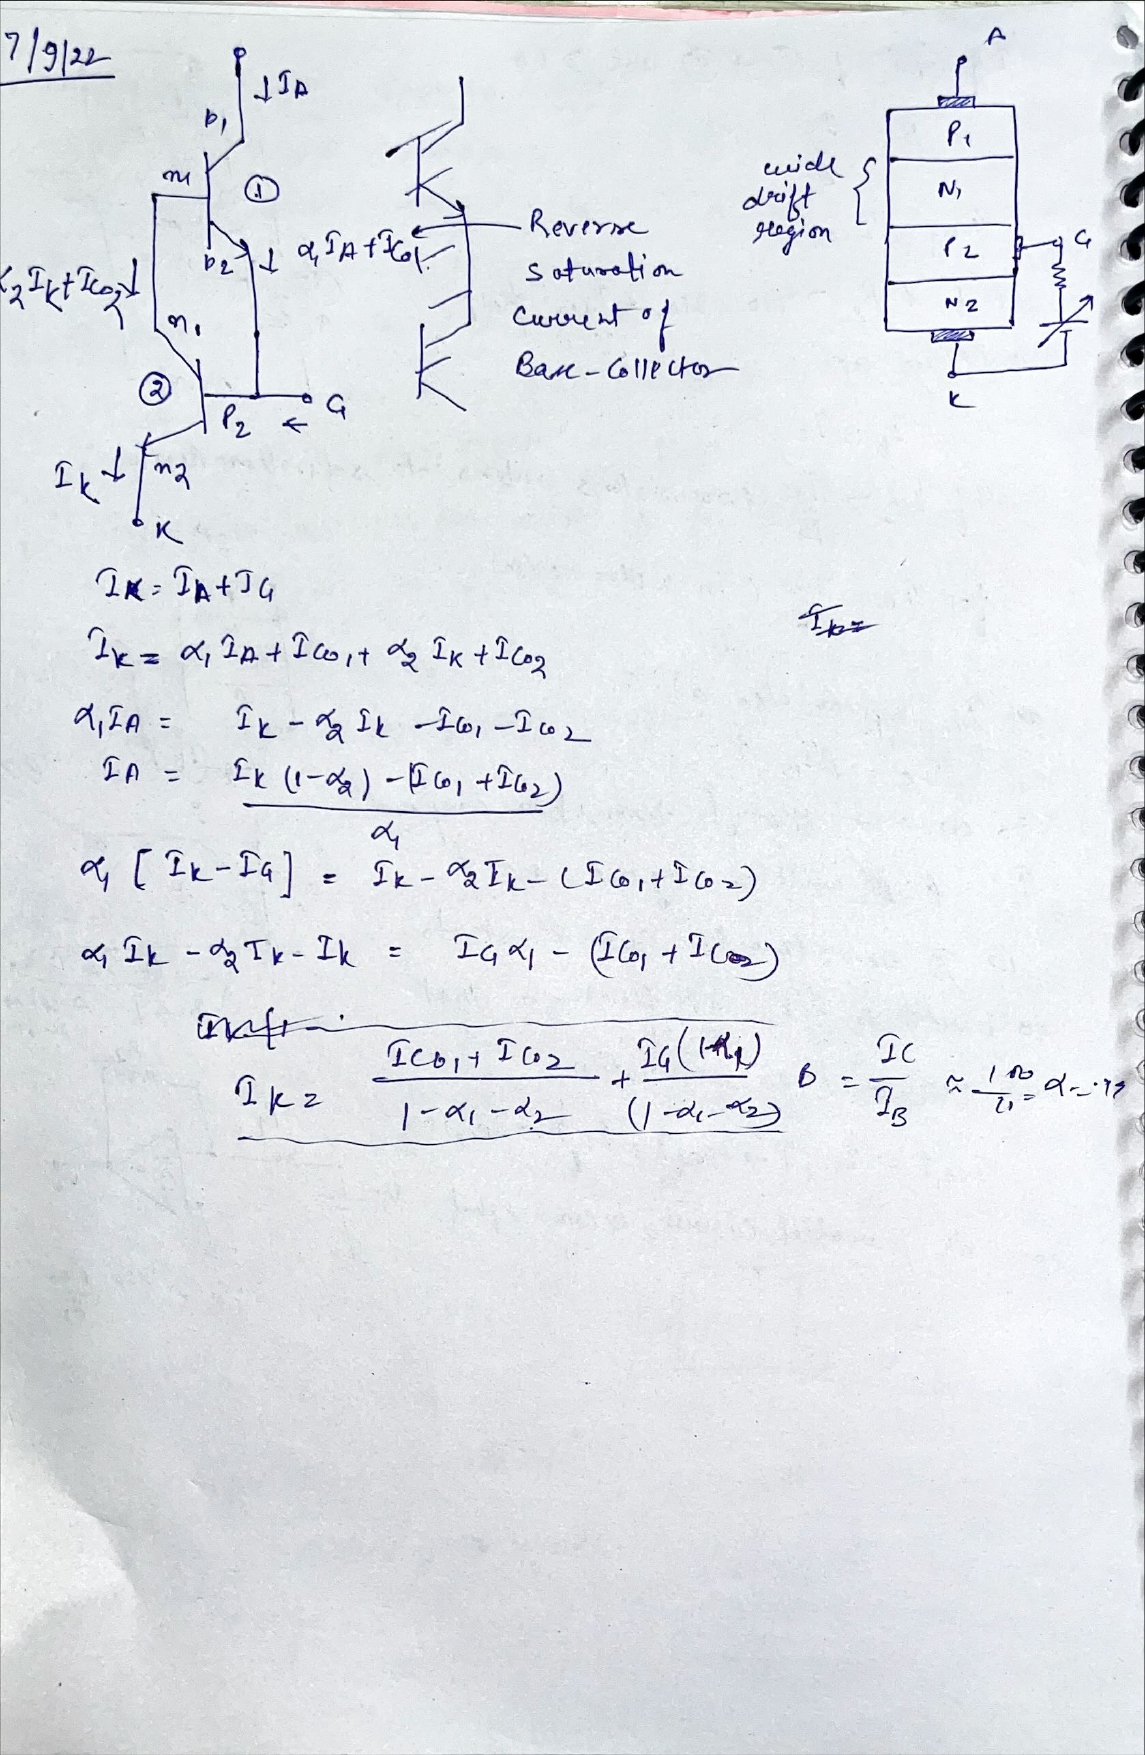 7/9/22
↓ I_A
P1
n1
①
P2
↓ α1 I_A + I_CO1
α2 I_K + I_CO2 ↓
n1
②
P2
G
←
I_K ↓
n2
K
Reverse
saturation
current of
Base-Collector
A
P1
wide
drift
region
N1
P2
G
N2
K
I_K = I_A + I_G
I_K =
I_K = α1 I_A + I_CO1 + α2 I_K + I_CO2
α1 I_A = I_K - α2 I_K - I_CO1 - I_CO2
I_A = I_K (1-α2) - (I_CO1 + I_CO2) / α1
α1 [I_K - I_G] = I_K - α2 I_K - (I_CO1 + I_CO2)
α1 I_K - α2 I_K - I_K = I_G α1 - (I_CO1 + I_CO2)
I_K = (I_CO1 + I_CO2) / (1-α1-α2) + I_G (1-α1) / (1-α1-α2)
B = I_C / I_B ≈